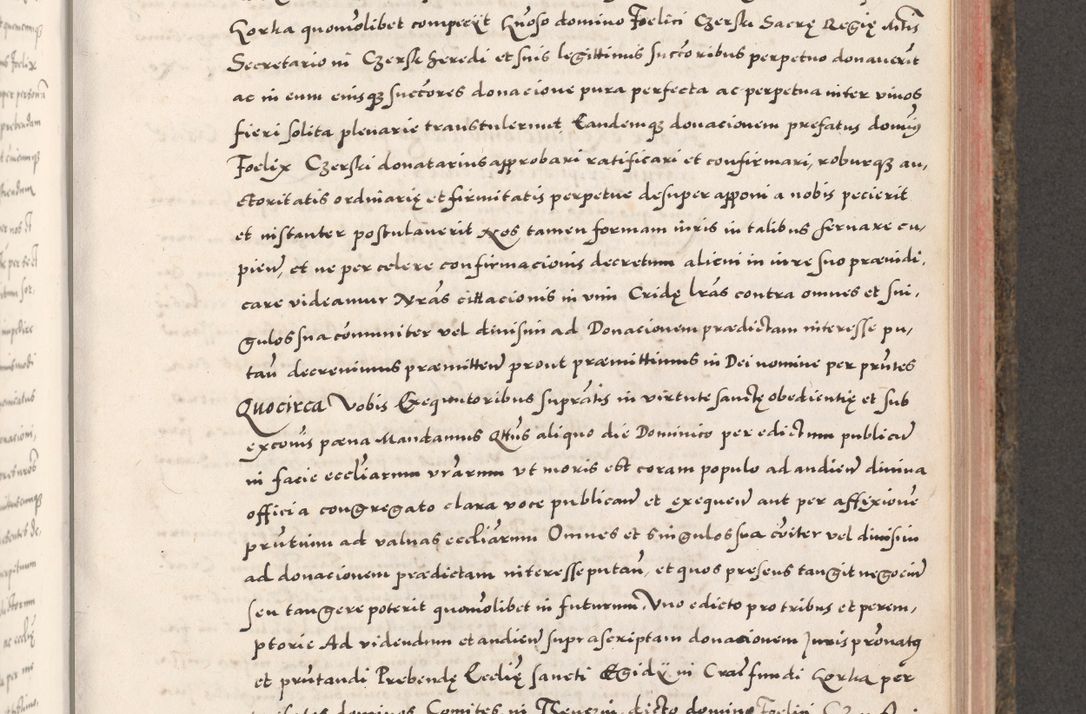 Gorka quomolibet competijt Gnoso domino Foelici Czerski Sacrę Regię Mttis
Secretario in Czersk heredi et suis legittimis succoribus perpetuo donauerut
ac in eum eiusqz succores donacione pura perfecta ac perpetua inter viuos
fieri solita plenarie transtulerunt Eandemqz donacionem prefatus domius
Foelix Czerski donatarius approbari ratificari et confirmari, roburqz au,
ctoritatis ordinarię et firmitatis perpetue desuper apponi a nobis pecierit
et instanter postulauerit Nos tamen formam iuris in talibus seruare cu,
pien, et ne per celere confirmacionis decretum alicui in iure suo præiudi,
care videamur Nras cittacionis in vim Cridę lras contra omnes et sin,
gulos sua comuniter vel diuisim ad Donacionem prædictam interesse pu,
tan decreuimus præmitten prout præmittimus in Dei nomine per pntes
Quocirca Vobis Exequutoribus supratis in virtute sanctę obedientię et sub
exconis pœna Mandamus Qttus aliquo die Dominico per edictum publicu
in facie eccliarum vrarum vt moris est coram populo ad audien diuina
officia congregato clara voce publican et exequen aut per affixione
pntium ad valuas eccliarum Omnes et singulos sua coiter vel diuisim
ad donacionem prædictam interesse putan, et quos presens tangit negociu
seu tangere poterit quomolibet in futurum. Vno edicto pro tribus et perem,
ptorie Ad videndum et audien suprascriptam donacionem Juris pronatq
et pntandi Prebendę Ecclię sancti Egidij in Cras fundi Gorka per
dominos Comites in Thenczin dicto domino Foelici